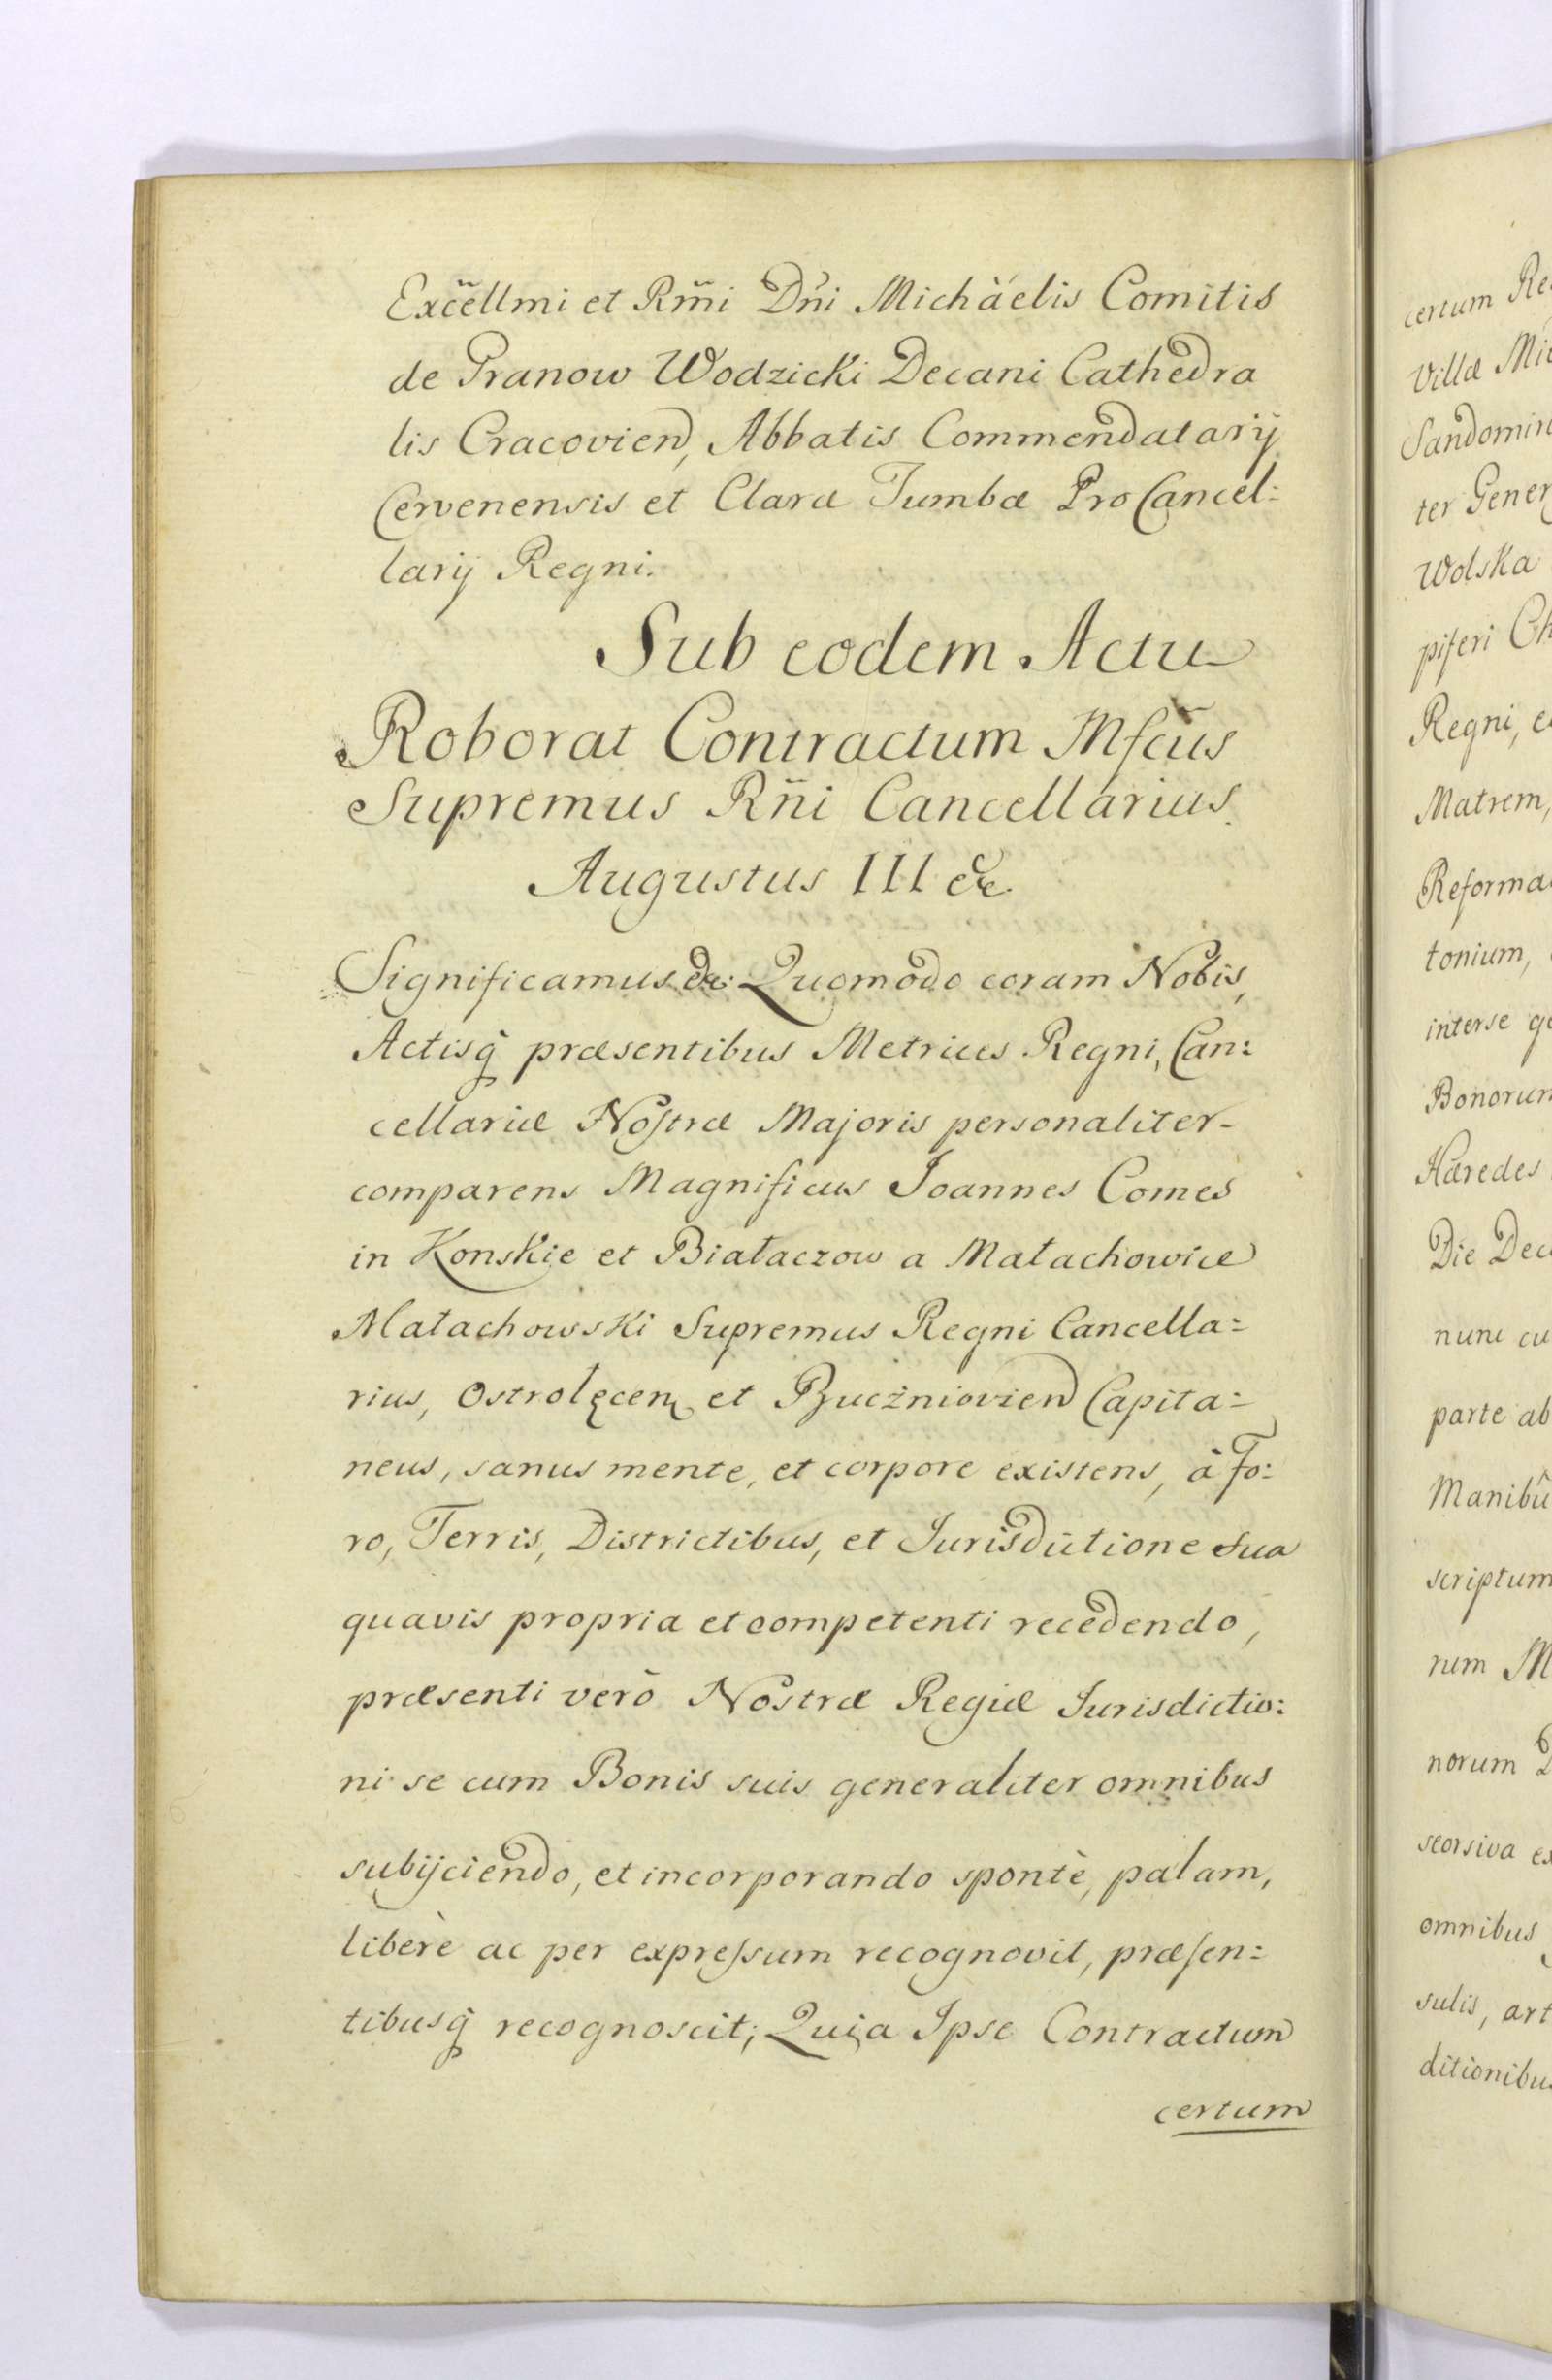 Excellmi et Rm̃i Dñi Michaelis Comitis
de Granow Wodzicki Decani Cathedra
lis Cracovien, Abbatis Commendatarij
Cervenensis et Claræ Tumbæ ProCancel:
larij Regni.
Sub eodem Actu
Roborat Contractum Mfcus
Supremus Rñi Cancellarius.
Augustus III &c.
Significamus &c: Quomodo coram Nobis,
Actisq̃ præsentibus Metrices Regni, Can:
cellariæ Nostræ Majoris personaliter
comparens Magnificus Joannes Comes
in Konskie et Białaczow a Małachowice
Małachowski Supremus Regni Cancella=
rius, Ostrolęcen et Buczniovien Capita=
neus, sanus mente, et corpore existens, à Fo:
ro, Terris, Districtibus, et Jurisdictione sua
quavis propria et competenti recedendo,
præsenti verò Nostræ Regiæ Jurisdictio:
ni se cum Bonis suis generaliter omnibus
subijciendo, et incorporando spontè, palam,
liberè ac per expressum recognovit, præsen=
tibusq̃ recognoscit; Quia Ipse Contractum
certum
certum
Villæ
Sandomir
ter Gener
Wolska
piferi Ch
Regni,
Matrem,
Reforma
tonium,
interse
Bonorum
Hæredes
Die
nunc cu
parte ab
Manibũ
scriptum
rum M
norum
seorsiva
omnibus
sulis, art
ditionibu